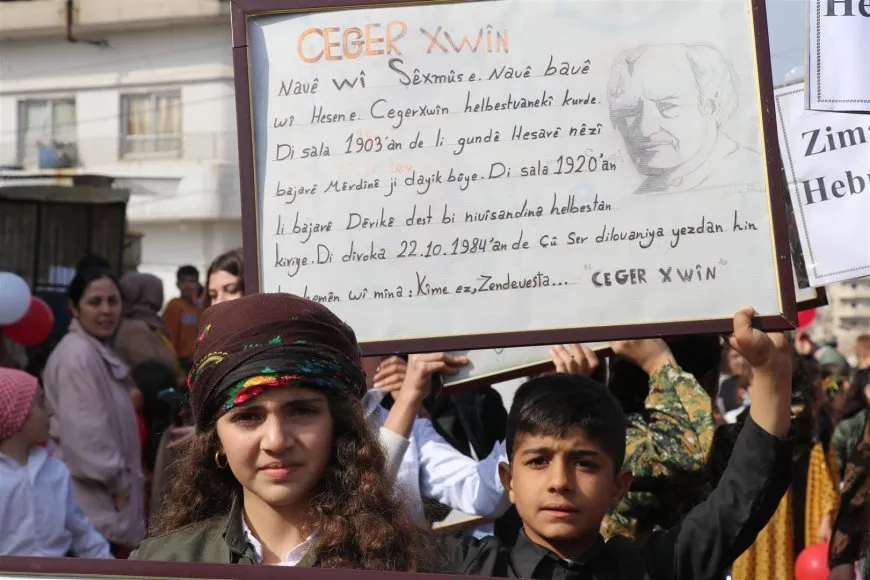 CEGER XWÎN
Navê wî Şêxmûse. Navê bavê
wî Hesene. Cegerxwîn helbestvanekî kurde.
Di sala 1903'an de li gundê Hesarê nêzî
bajarê Mêrdînê ji dayik bûye. Di sala 1920'an
li bajarê Dêrikê dest bi nivîsandina helbestan
kiriye. Di dîroka 22.10.1984'an de çû ser dilovaniya yezdan hin
wî mîna: Kîme ez, Zendevesta... "CEGER XWÎN"
He
Zima
Hebû